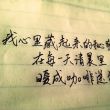 我心里藏起来的秘密
在每天清晨里
暖成咖啡